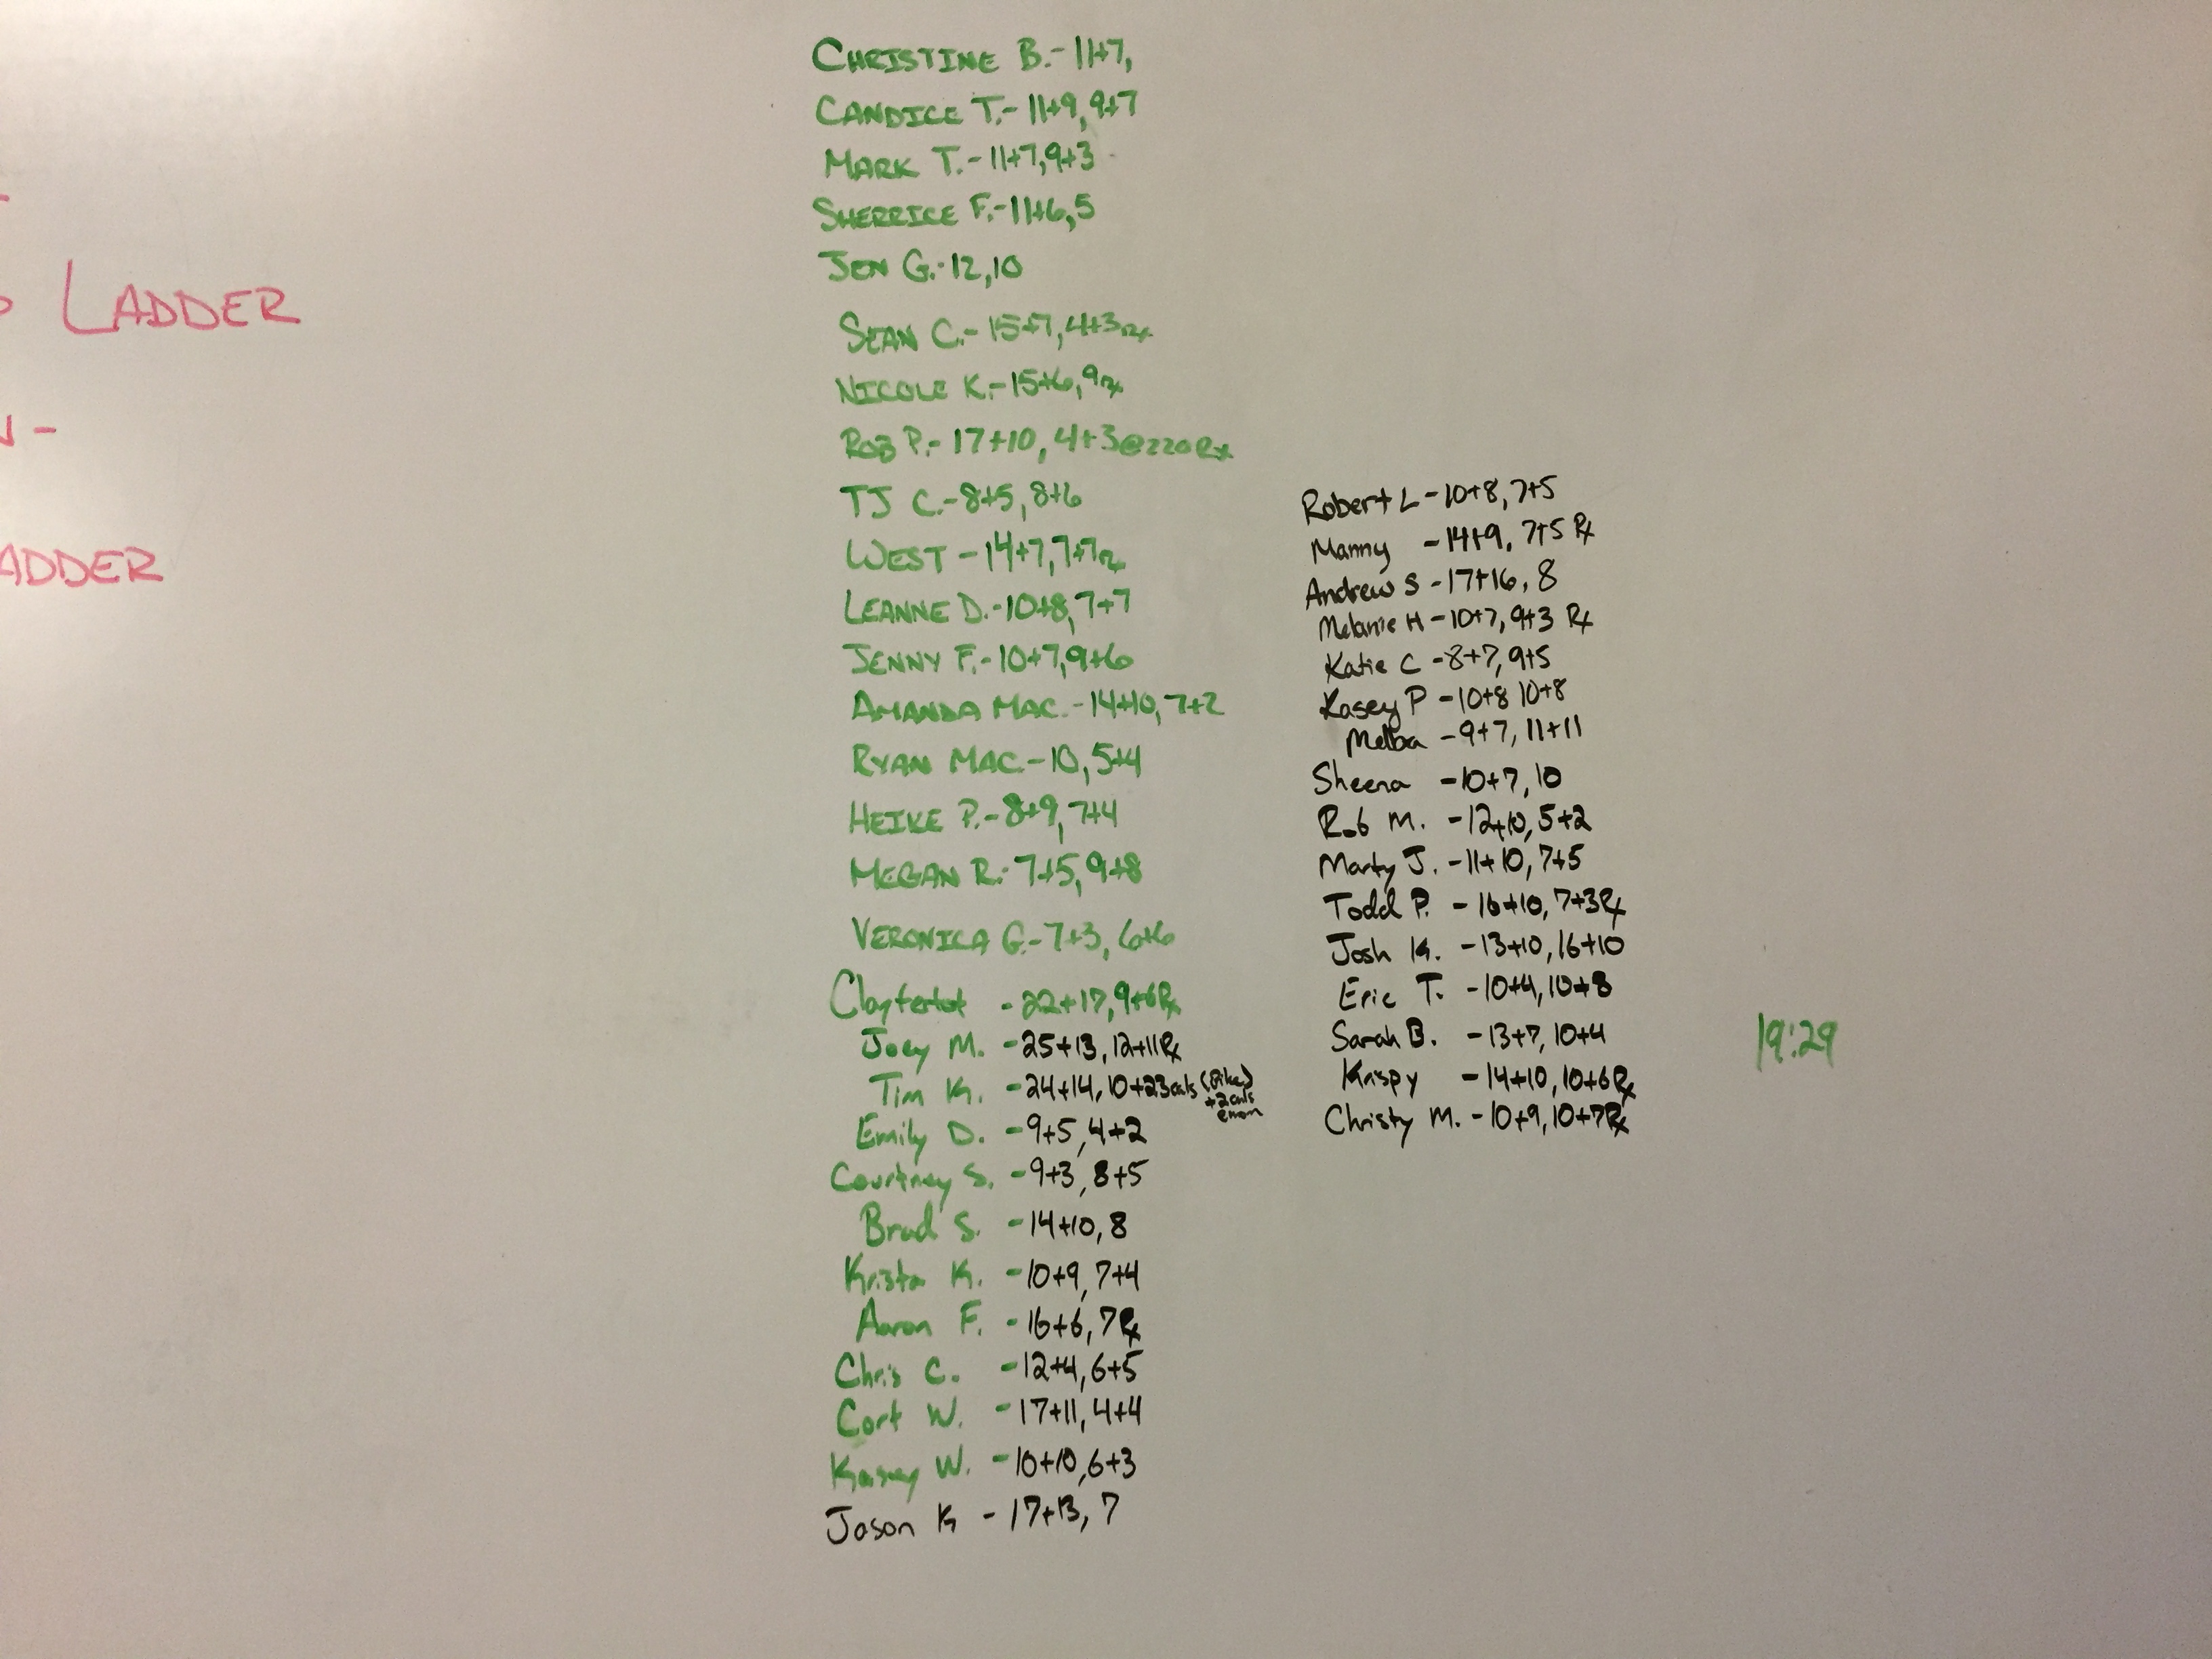 LADDER
ADDER
CHRISTINE B.- 11+7,
CANDICE T.- 11+9, 9+7
MARK T.- 11+7, 9+3
SHERRICE F.- 11+6, 5
JEN G.- 12, 10
SEAN C.- 15+7, 4+3 Rx
NICOLE K.- 15+6, 9 Rx
ROB P.- 17+10, 4+3 @220 Rx
TJ C.- 8+5, 8+6
WEST - 14+7, 7+7 Rx
LEANNE D.- 10+8, 7+7
JENNY F.- 10+7, 9+6
AMANDA MAC.- 14+10, 7+2
RYAN MAC.- 10, 5+4
HEIKE P.- 8+9, 7+4
MEGAN R.- 7+5, 9+8
VERONICA G.- 7+3, 6+6
Claytertot - 22+17, 9+6 Rx
Joey M. - 25+13, 12+11 Rx
Tim K. - 24+14, 10+23cals (Bike)
+2cals
Emily D. - 9+5, 4+2
Courtney S. - 9+3, 8+5
Brad S. - 14+10, 8
Krista K. - 10+9, 7+4
Aaron F. - 16+6, 7 Rx
Chris C. - 12+4, 6+5
Cort W. - 17+11, 4+4
Kasey W. - 10+10, 6+3
Jason K - 17+13, 7
Robert L - 10+8, 7+5
Manny - 14+9, 7+5 Rx
Andrew S - 17+16, 8
Melanie H - 10+7, 9+3 Rx
Katie C - 8+7, 9+5
Kasey P - 10+8 10+8
Melba - 9+7, 11+11
Sheena - 10+7, 10
Rob M. - 12+10, 5+2
Marty J. - 11+10, 7+5
Todd P. - 16+10, 7+3 Rx
Josh K. - 13+10, 16+10
Eric T. - 10+4, 10+8
Sarah B. - 13+7, 10+4
Krispy - 14+10, 10+6 Rx
Christy M. - 10+9, 10+7 Rx
19:29